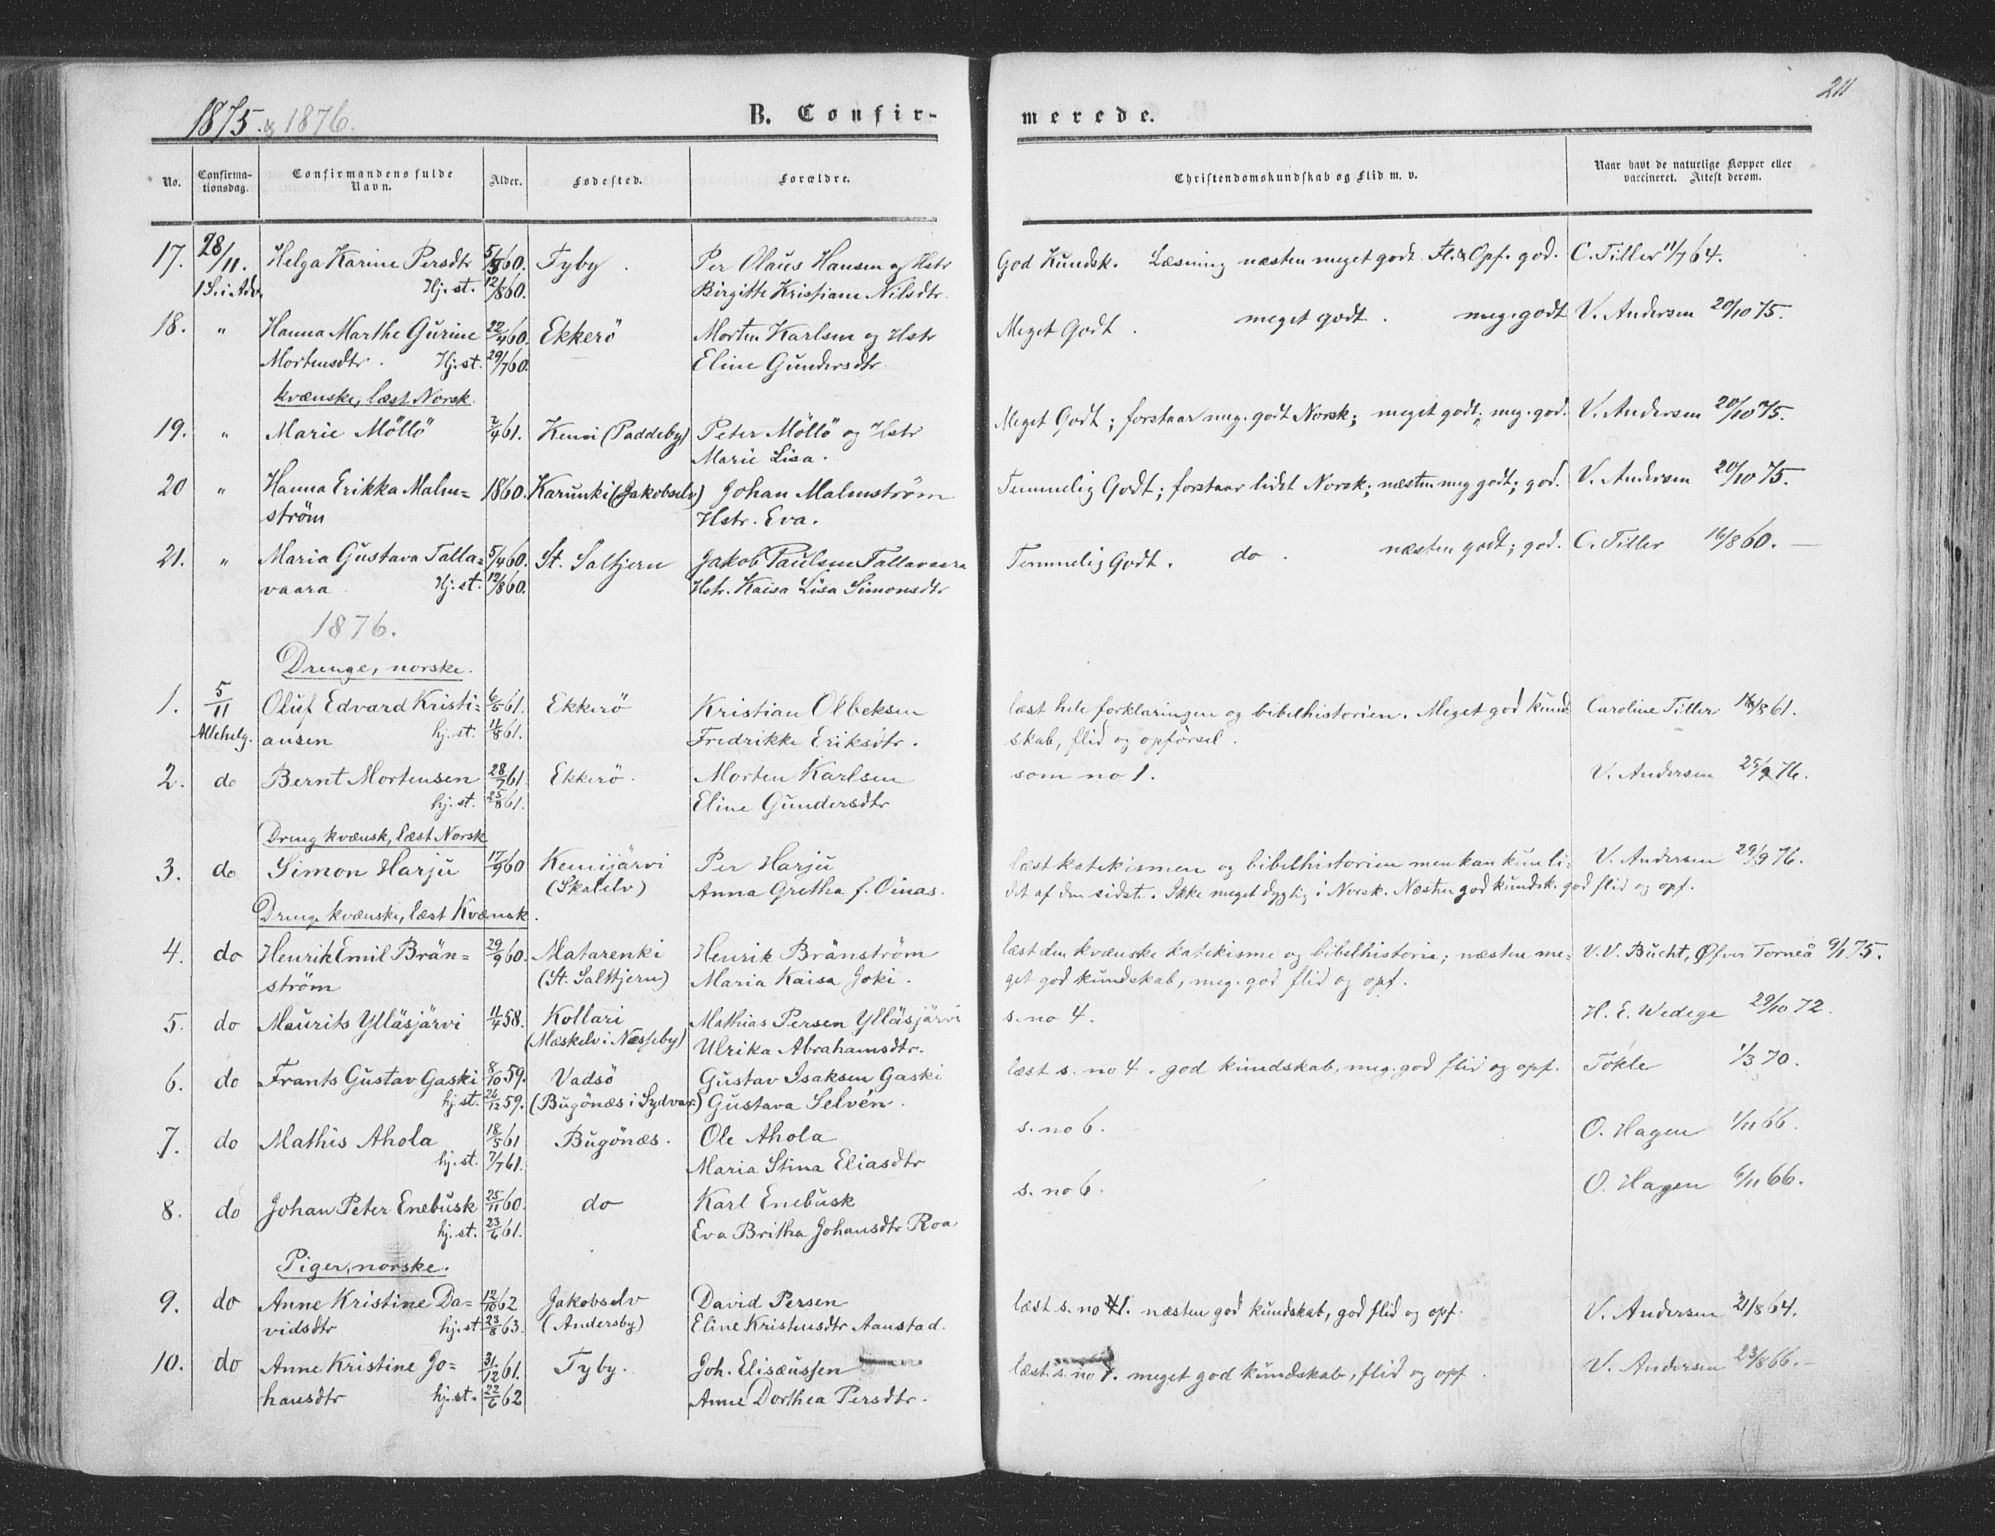 211
1875 & 1876.
B. Confir-
merede.
No.
Confirma-
tionsdag.
Confirmandens fulde
Navn.
Alder.
Fødested.
Forældre.
Christendomskundskab og Flid m. v.
Naar havt de naturlige Kopper eller
vaccineret. Attest derom.
17. 28/11. Helga Karine Persdtr 5/5 60. Tyby. Per Olaus Hansen og Hstr God Kundsk. Læsning næsten meget godt. Fl. & Opf. god. C. Tiller 11/7 64.
1 S. i Adv. Hj. st. 12/8 60. Birgitte Kristiane Nilsdtr.
18. " Hanna Marthe Gurine 22/4 60. Ekkerö Morten Karlsen og Hstr Meget Godt. meget godt. meg. godt V. Andersen 20/10 75.
Mortensdtr. Hj. st. 29/7 60. Eline Gundersdtr.
kvænske, læst Norsk.
19. " Marie Möllö 7/4 61. Kemi (Paddeby) Peter Möllö og Hstr Meget Godt; forstaar meg. godt Norsk; meget godt; meg. god. V. Andersen 20/10 75.
Marie Lisa.
20 " Hanna Erikka Malm= 1860. Karunki (Jakobselv) Johan Malmström Temmelig Godt; forstaar lidt Norsk; næsten meg godt; god. V. Andersen 20/10 75.
ström Hstr. Eva.
21. " Maria Gustava Talla= 5/4 60. St. Saltjern Jakob Paulsen Tallavaara Temmelig Godt. do. næsten godt; god. C. Tiller 16/8 60. —
vaara Hj. st. 12/8 60. Hstr. Kaisa Lisa Simonsdtr
1876.
Drenge, norske.
1. 5/11 Oluf Edvard Kristi= 6/5 61. Ekkerö Kristian Olbeksen læst hele forklaringen og bibelhistorien. Meget god kund= Caroline Tiller 16/8 61.
Allehelg. ansen hj. st. 11/8 61. Fredrikke Eriksdtr. skab, flid og opförsel.
2. do Bernt Mortensen 28/7 61 Ekkerö. Morten Karlsen som no 1. V. Andersen 25/9 76.
hj. st. 25/8 61. Eline Gundersdtr
Dreng kvænsk, læst Norsk
3. do Simon Harju 17/9 60 Kemijärvi Per Harju læst katekismen og bibelhistorien men kan kun li= V. Andersen 29/9 76.
(Skalelv) Anna Gretha f. Oinas. det af den sidste. Ikke meget dygtig i Norsk. Næsten god kundsk. god flid og opf.
Drenge kvænske, læst Kvænsk.
4. do Henrik Emil Brän= 29/9 60. Matarenki Henrik Bränström læst den kvænske katekisme og bibelhistorie; næsten me= V. V. Bucht, Øfver Torneå 9/1 75.
ström (St. Saltjern) Maria Kaisa Joki. get god kundskab, meg. god flid og opf.
5. do Maurits Ylläsjärvi 11/4 58. Kollari Mathias Persen Ylläsjärvi s. no 4. H. E. Wedege 29/10 72.
(Mæskelv i Næsseby) Ulrika Abrahamsdtr.
6. do Frants Gustav Gaski 8/10 59. Vadsö Gustav Isaksen Gaski læst s. no 4. god kundskab, meg. god flid og opf. Tökle 1/3 70.
hj. st. 26/12 59. (Bugönæs i Sydvar.) Gustava Selvén.
7. do Mathis Ahola 18/5 61 Bugönæs. Ole Ahola s. no 6. O. Hagen 1/11 66.
hj. st. 7/7 61. Maria Stina Eliasdtr
8. do Johan Peter Enebusk 25/11 60. do Karl Enebusk s. no 6. O. Hagen 6/11 66.
hj. st. 23/6 61. Eva Britha Johansdtr Roa
Piger, norske.
9. do Anne Kristine Da= 12/10 62 Jakobselv David Persen læst s. no 1. næsten god kundskab, god flid og opf. V. Andersen 21/8 64.
vidsdtr hj. st. 23/8 63. (Andersby) Eline Kristensdtr Aanstad.
10. do Anne Kristine Jo= 31/12 61. Tyby. Joh. Elisæussen læst s. no 1. meget god kundskab, flid og opf. V. Andersen 23/8 66. –
hansdtr hj. st. 22/6 62 Anne Dorthea Persdtr.